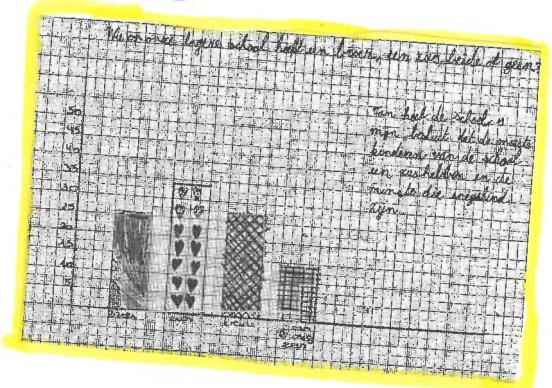 Wie van onze lagere school heeft een broer, een zus, beide of geen?
Van heel de school is
mijn besluit dat de meeste
kinderen van de school
een zus hebben en de
minste die enigskind
zijn.
50
45
40
35
30
25
20
15
10
5
broer
zus
beide